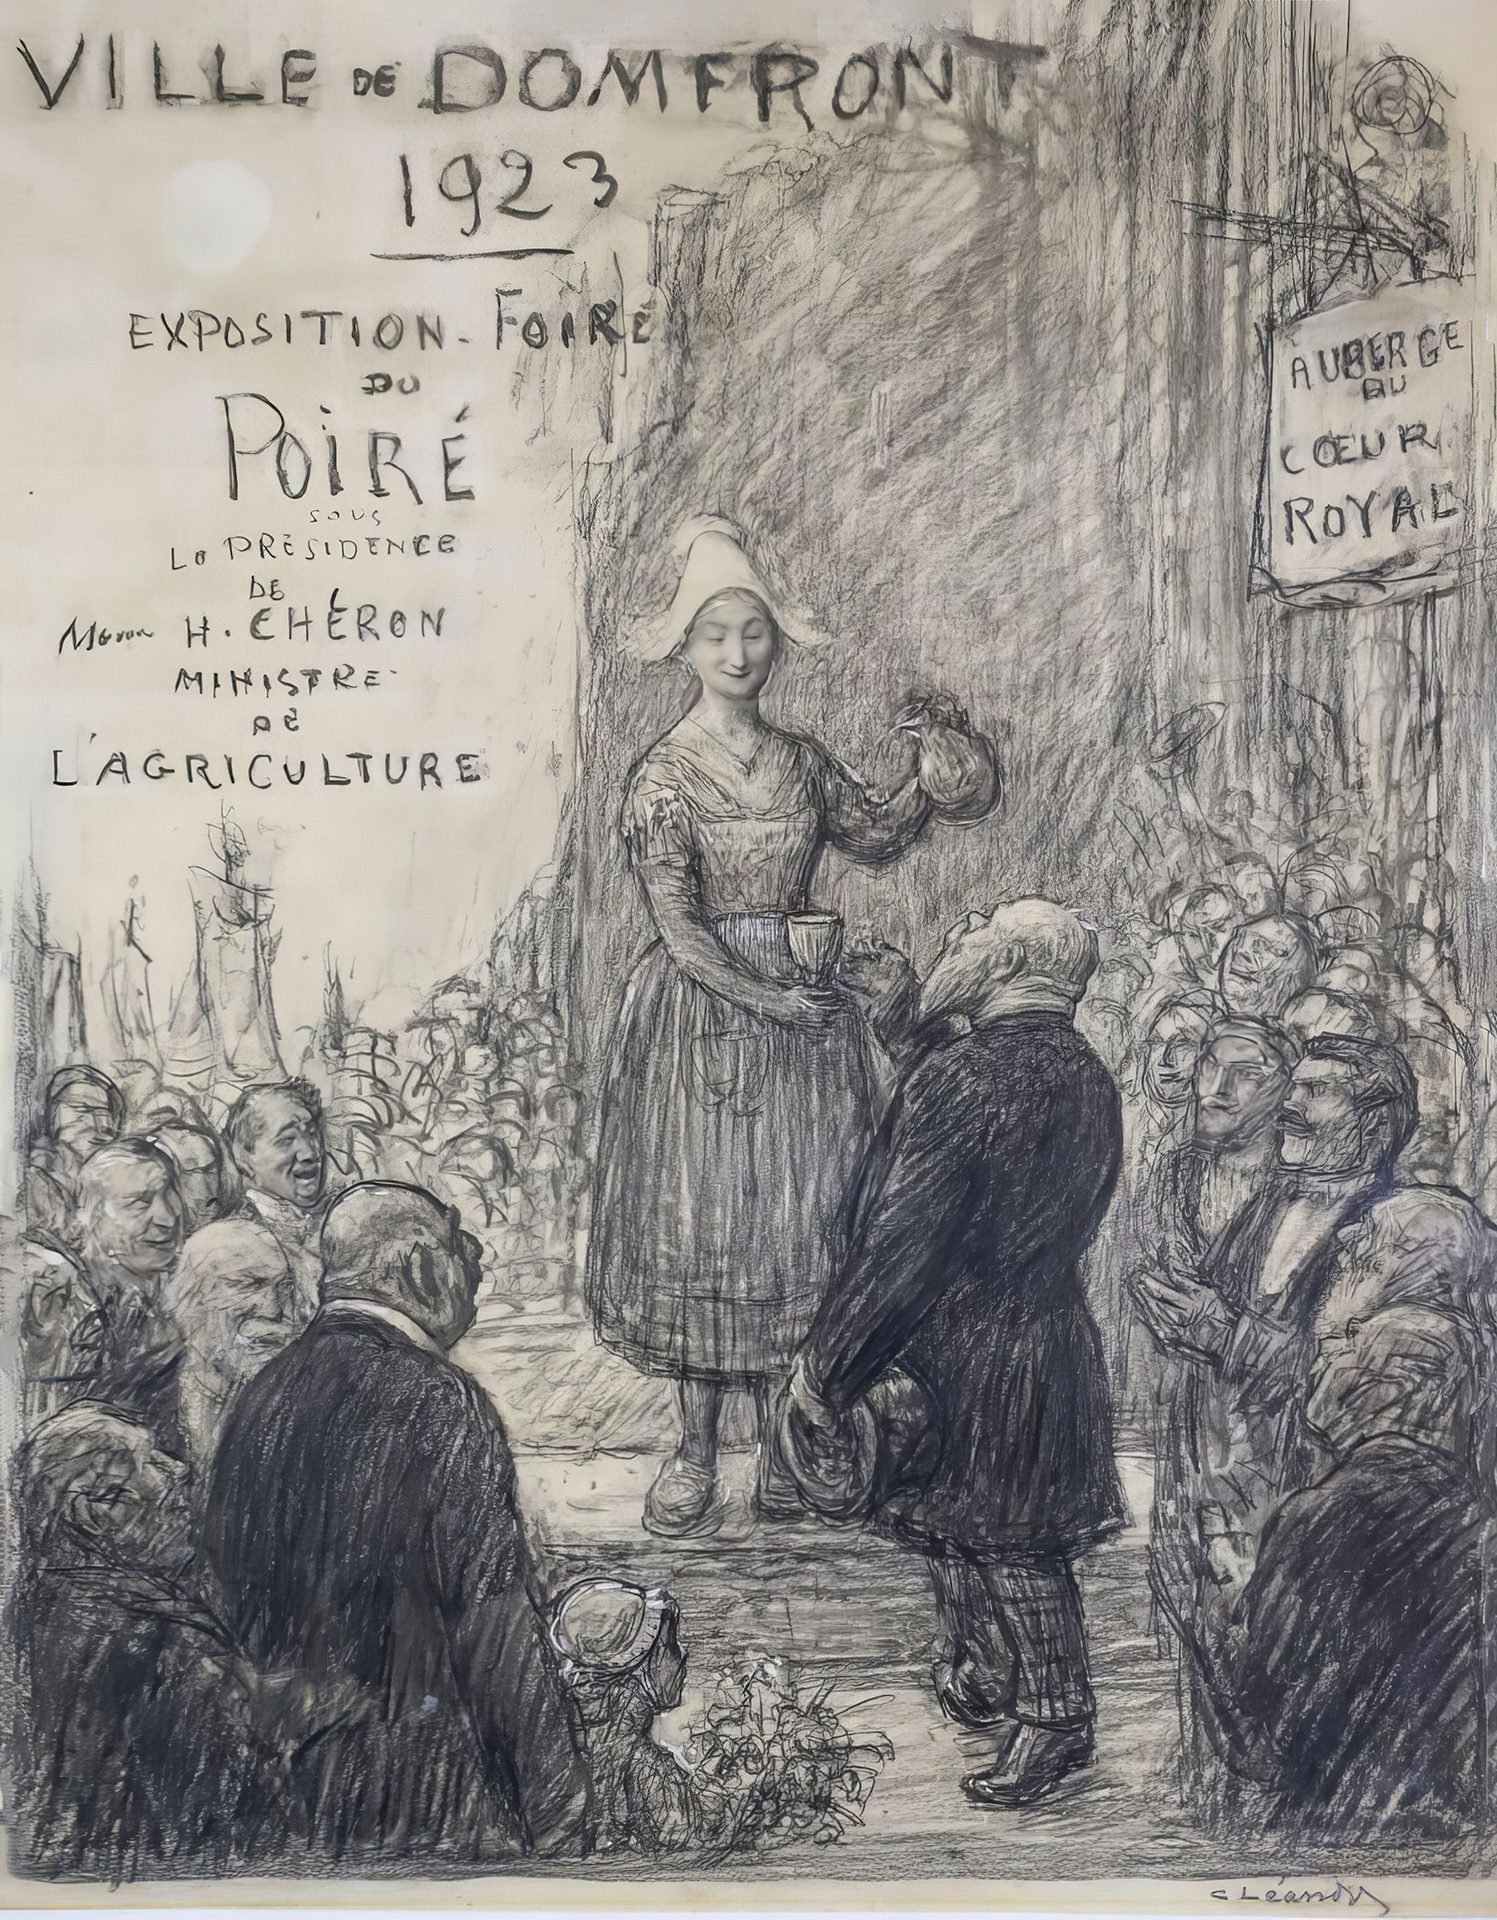 VILLE DE DOMFRONT
1923
EXPOSITION - FOIRE
DU
POIRÉ
SOUS
LA PRÉSIDENCE
DE
H. CHÉRON
MINISTRE
DE
L'AGRICULTURE
AUBERGE
AU
CŒUR
ROYAL
C Léandre